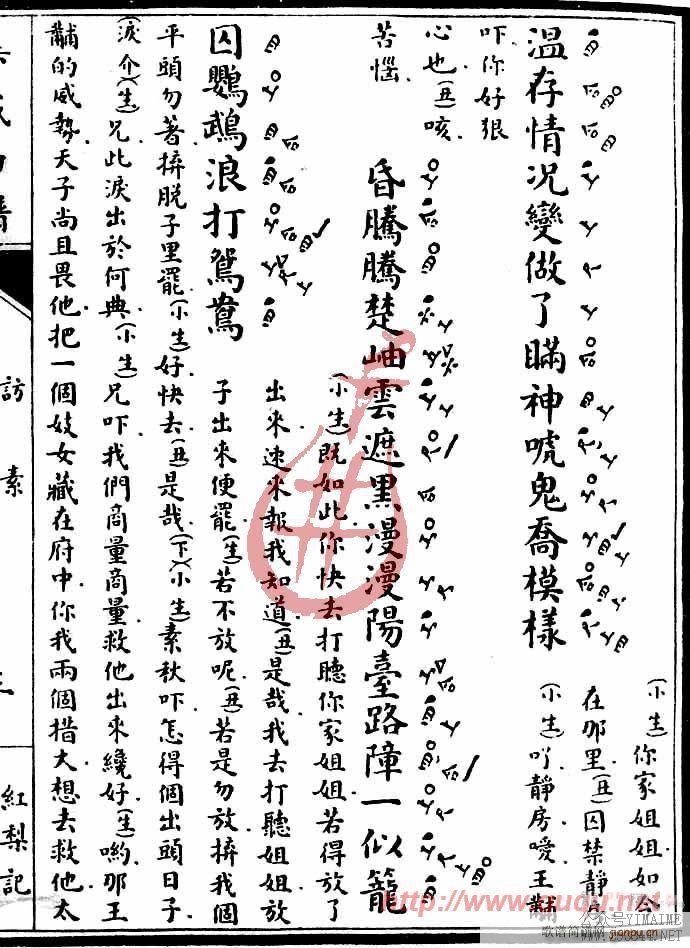 溫存情况變做了瞞神唬鬼喬模樣
(小生)你家姐姐如今
在那里(丑)囚禁靜
(小生)吖靜房嗳王黼
吓你好狠
心也(丑)咳
苦惱
昏騰騰楚岫雲遮黑漫漫陽臺路障一似籠
(小生)既如此你快去打聽你家姐姐若得放了
出來速來報我知道(丑)是哉我去打聽姐姐放
囚鸚鵡浪打鴛鴦
子出來便罷(生)若不放呢(丑)若是勿放拚我個
平頭勿著拚脱子里罷(小生)好快去(丑)是哉(下)(小生)素秋吓怎得個出頭日子
(淚介)(生)兄此淚出於何典(小生)兄吓我們商量商量救他出來纔好(生)喲那王
黼的威勢天子尚且畏他把一個妓女藏在府中你我兩個措大想去救他太
訪素
紅梨記
http://www.yuqu.net
公众号YIMAIME
歌谱简谱网
jianpu.cn